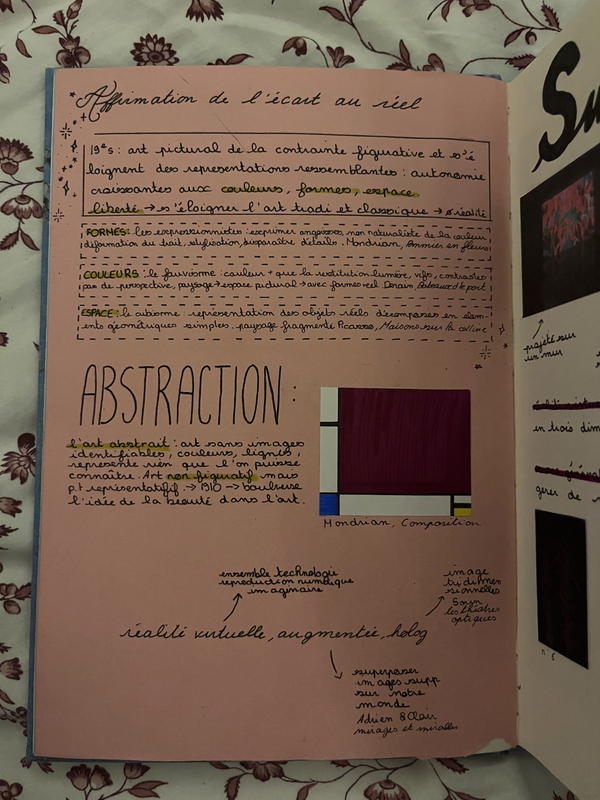 Affirmation de l'écart au réel
19e s : art pictural de la contrainte figurative et s'é
loignent des representations ressemblantes : autonomie
croissantes aux couleurs, formes, espace
liberté → s'éloigner l'art tradi et classique → ≠ réalité
FORMES: les expressionnistes : exprimer angoisses, non naturaliste de la couleur
déformation du trait, stylisation, disparaitre détails. Mondrian, Pommier en fleurs
COULEURS : le fauvisme : couleur + que la restitution lumière, vifs, contrastes
pas de perspective, paysage → espace pictural → avec formes réel Derain,
ESPACE : le cubisme : representation des objets réels décomposes en élem-
ents géometriques simples. paysage fragmenté Picasso, Maisons sur la colline
ABSTRACTION :
l'art abstrait : art sans images
identifiables, couleurs, lignes,
représente rien que l'on puisse
connaitre. Art non figuratif mais
p.t représentatif → 1910 → bouleverse
l'idée de la beauté dans l'art.
Mondrian, Composition
ensemble technologie
reproduction numérique
imaginaire
image
tridimen
sionnelles
les théâtres
optiques
réalité virtuelle, augmentée, holog
superposer
images supp
sur notre
monde
Adrien & Clair
mirages et miracles
Su
projeté sur
un mur
en trois dim
gérer de